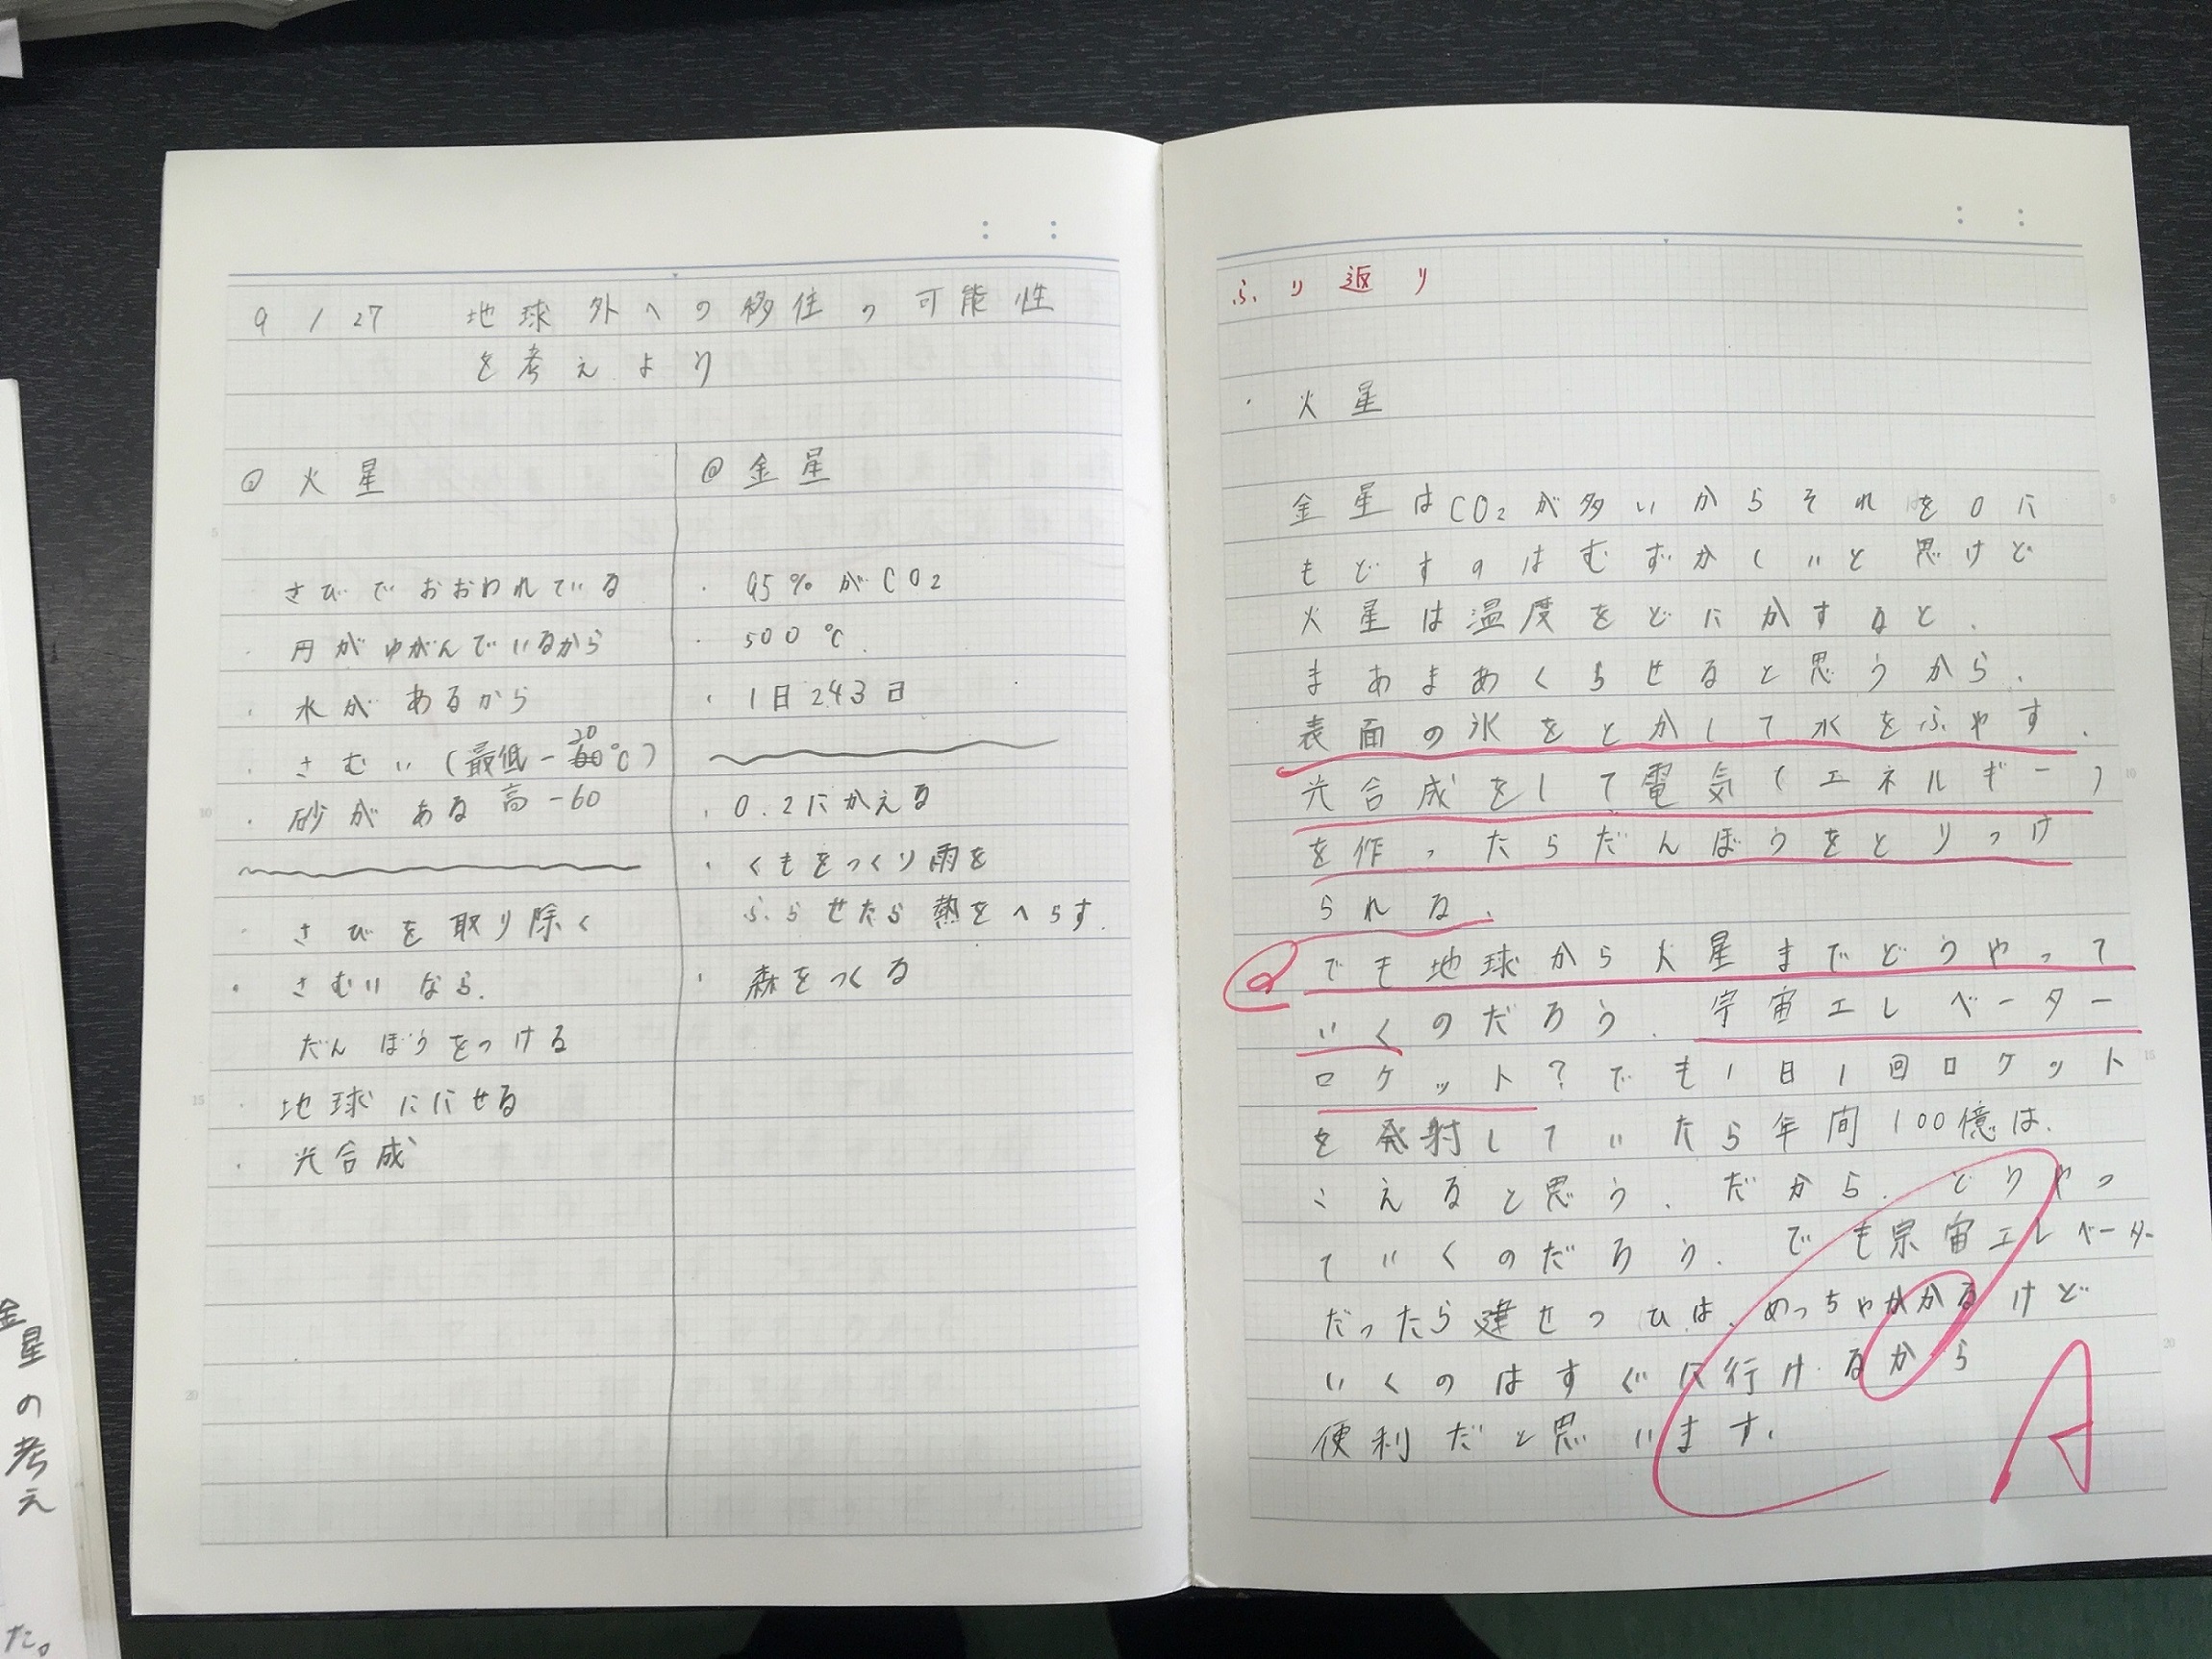 9/27 地球外への移住の可能性
を考えよう
@火星
・さびでおおわれている
・円がゆがんでいるから
・水があるから
・さむい(最低-20℃)
高-60
・砂がある
・さびを取り除く
・さむいなら、
だんぼうをつける
・地球ににせる
・光合成
@金星
・95%がCO2
・500℃.
・1日243日
・0.2にかえる
・くもをつくり雨を
ふらせたら熱をへらす.
・森をつくる
ふり返り
・火星
金星はCO2が多いからそれを0に
もどすのはむずかしいと思けど
火星は温度をどにかすると、
まあまあくらせると思うから、
表面の氷をとかして水をふやす、
光合成をして電気(エネルギー)
を作ったらだんぼうをとりつけ
られる、
でも地球から火星までどうやって
いくのだろう.宇宙エレベーター
ロケット?でも1日1回ロケット
を発射していたら年間100億は、
こえると思う、だから、どうやっ
ていくのだろう.でも宗宙エレベーター
だったら建せつひは、めっちゃかかるけど
いくのはすぐに行けるから
便利だと思います、
A
金星の考え
た。